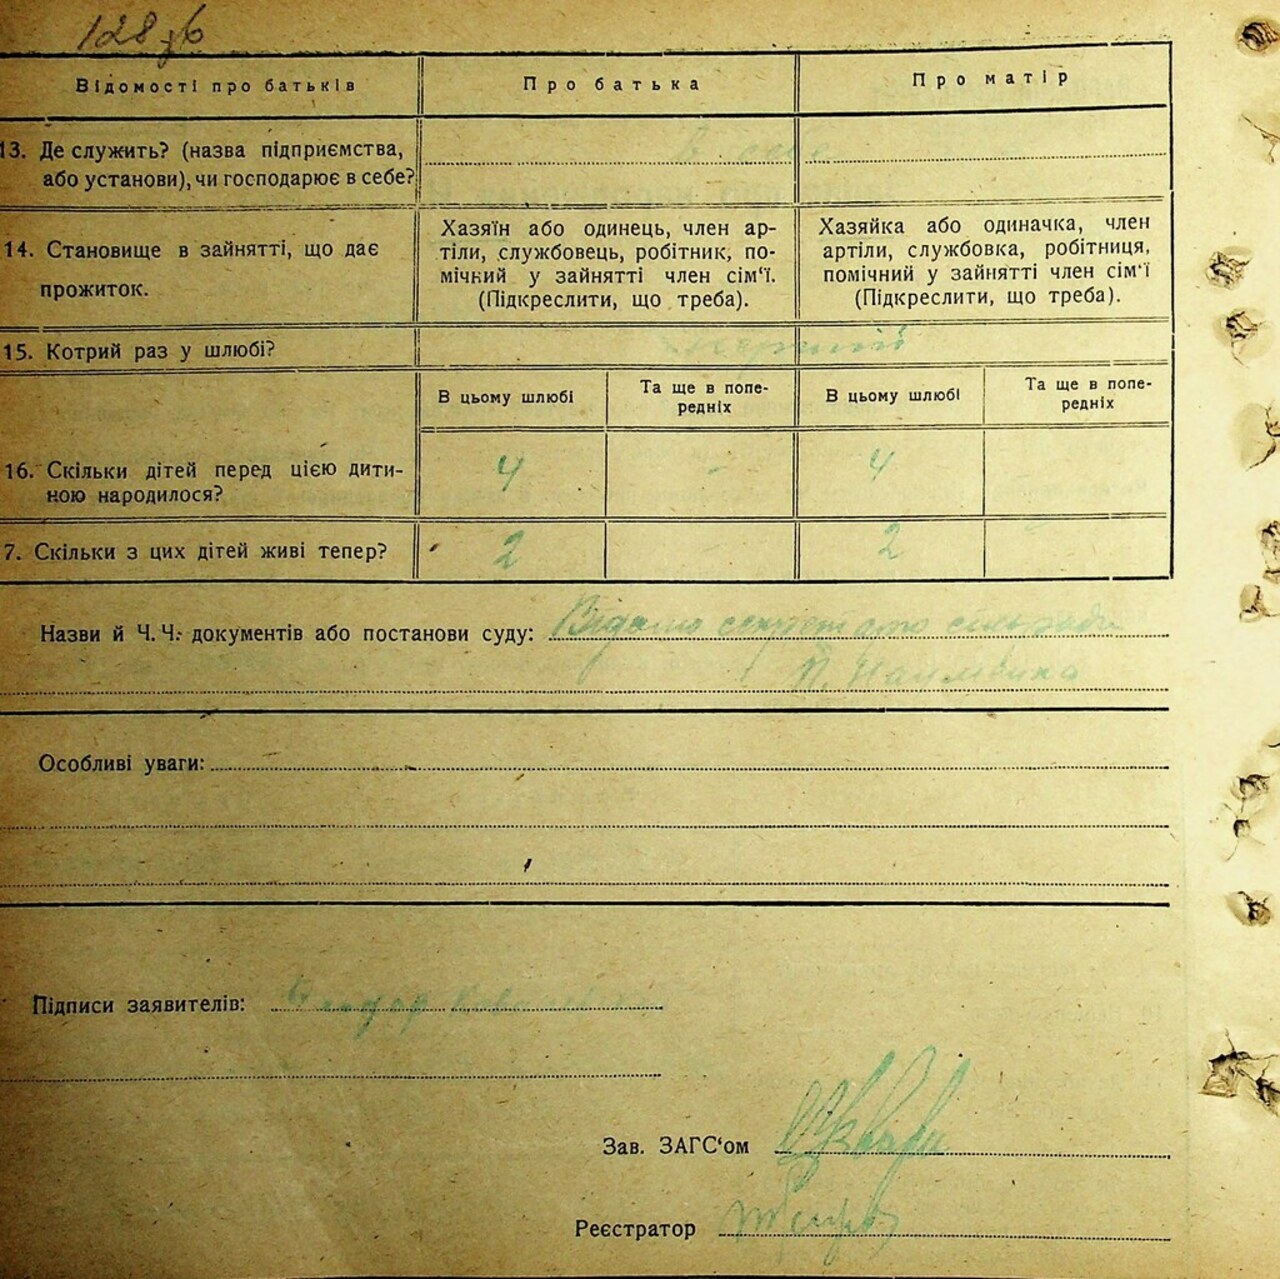 128 зв
Відомості про батьків
Про батька
Про матір
13. Де служить? (назва підприємства,
або установи), чи господарює в себе?
в себе
14. Становище в зайнятті, що дає
прожиток.
Хазяїн або одинець, член ар-
тіли, службовець, робітник, по-
мічний у зайнятті член сім‘ї.
(Підкреслити, що треба).
Хазяйка або одиначка, член
артіли, службовка, робітниця,
помічний у зайнятті член сім‘ї
(Підкреслити, що треба).
15. Котрий раз у шлюбі?
Перший
В цьому шлюбі
Та ще в попе-
редніх
В цьому шлюбі
Та ще в попе-
редніх
16. Скільки дітей перед цією дити-
ною народилося?
4
-
4
7. Скільки з цих дітей живі тепер?
2
2
Назви й Ч. Ч. документів або постанови суду: Відомо секретарю сільради
Особливі уваги:
Підписи заявителів:
Зав. ЗАГС‘ом
Реєстратор